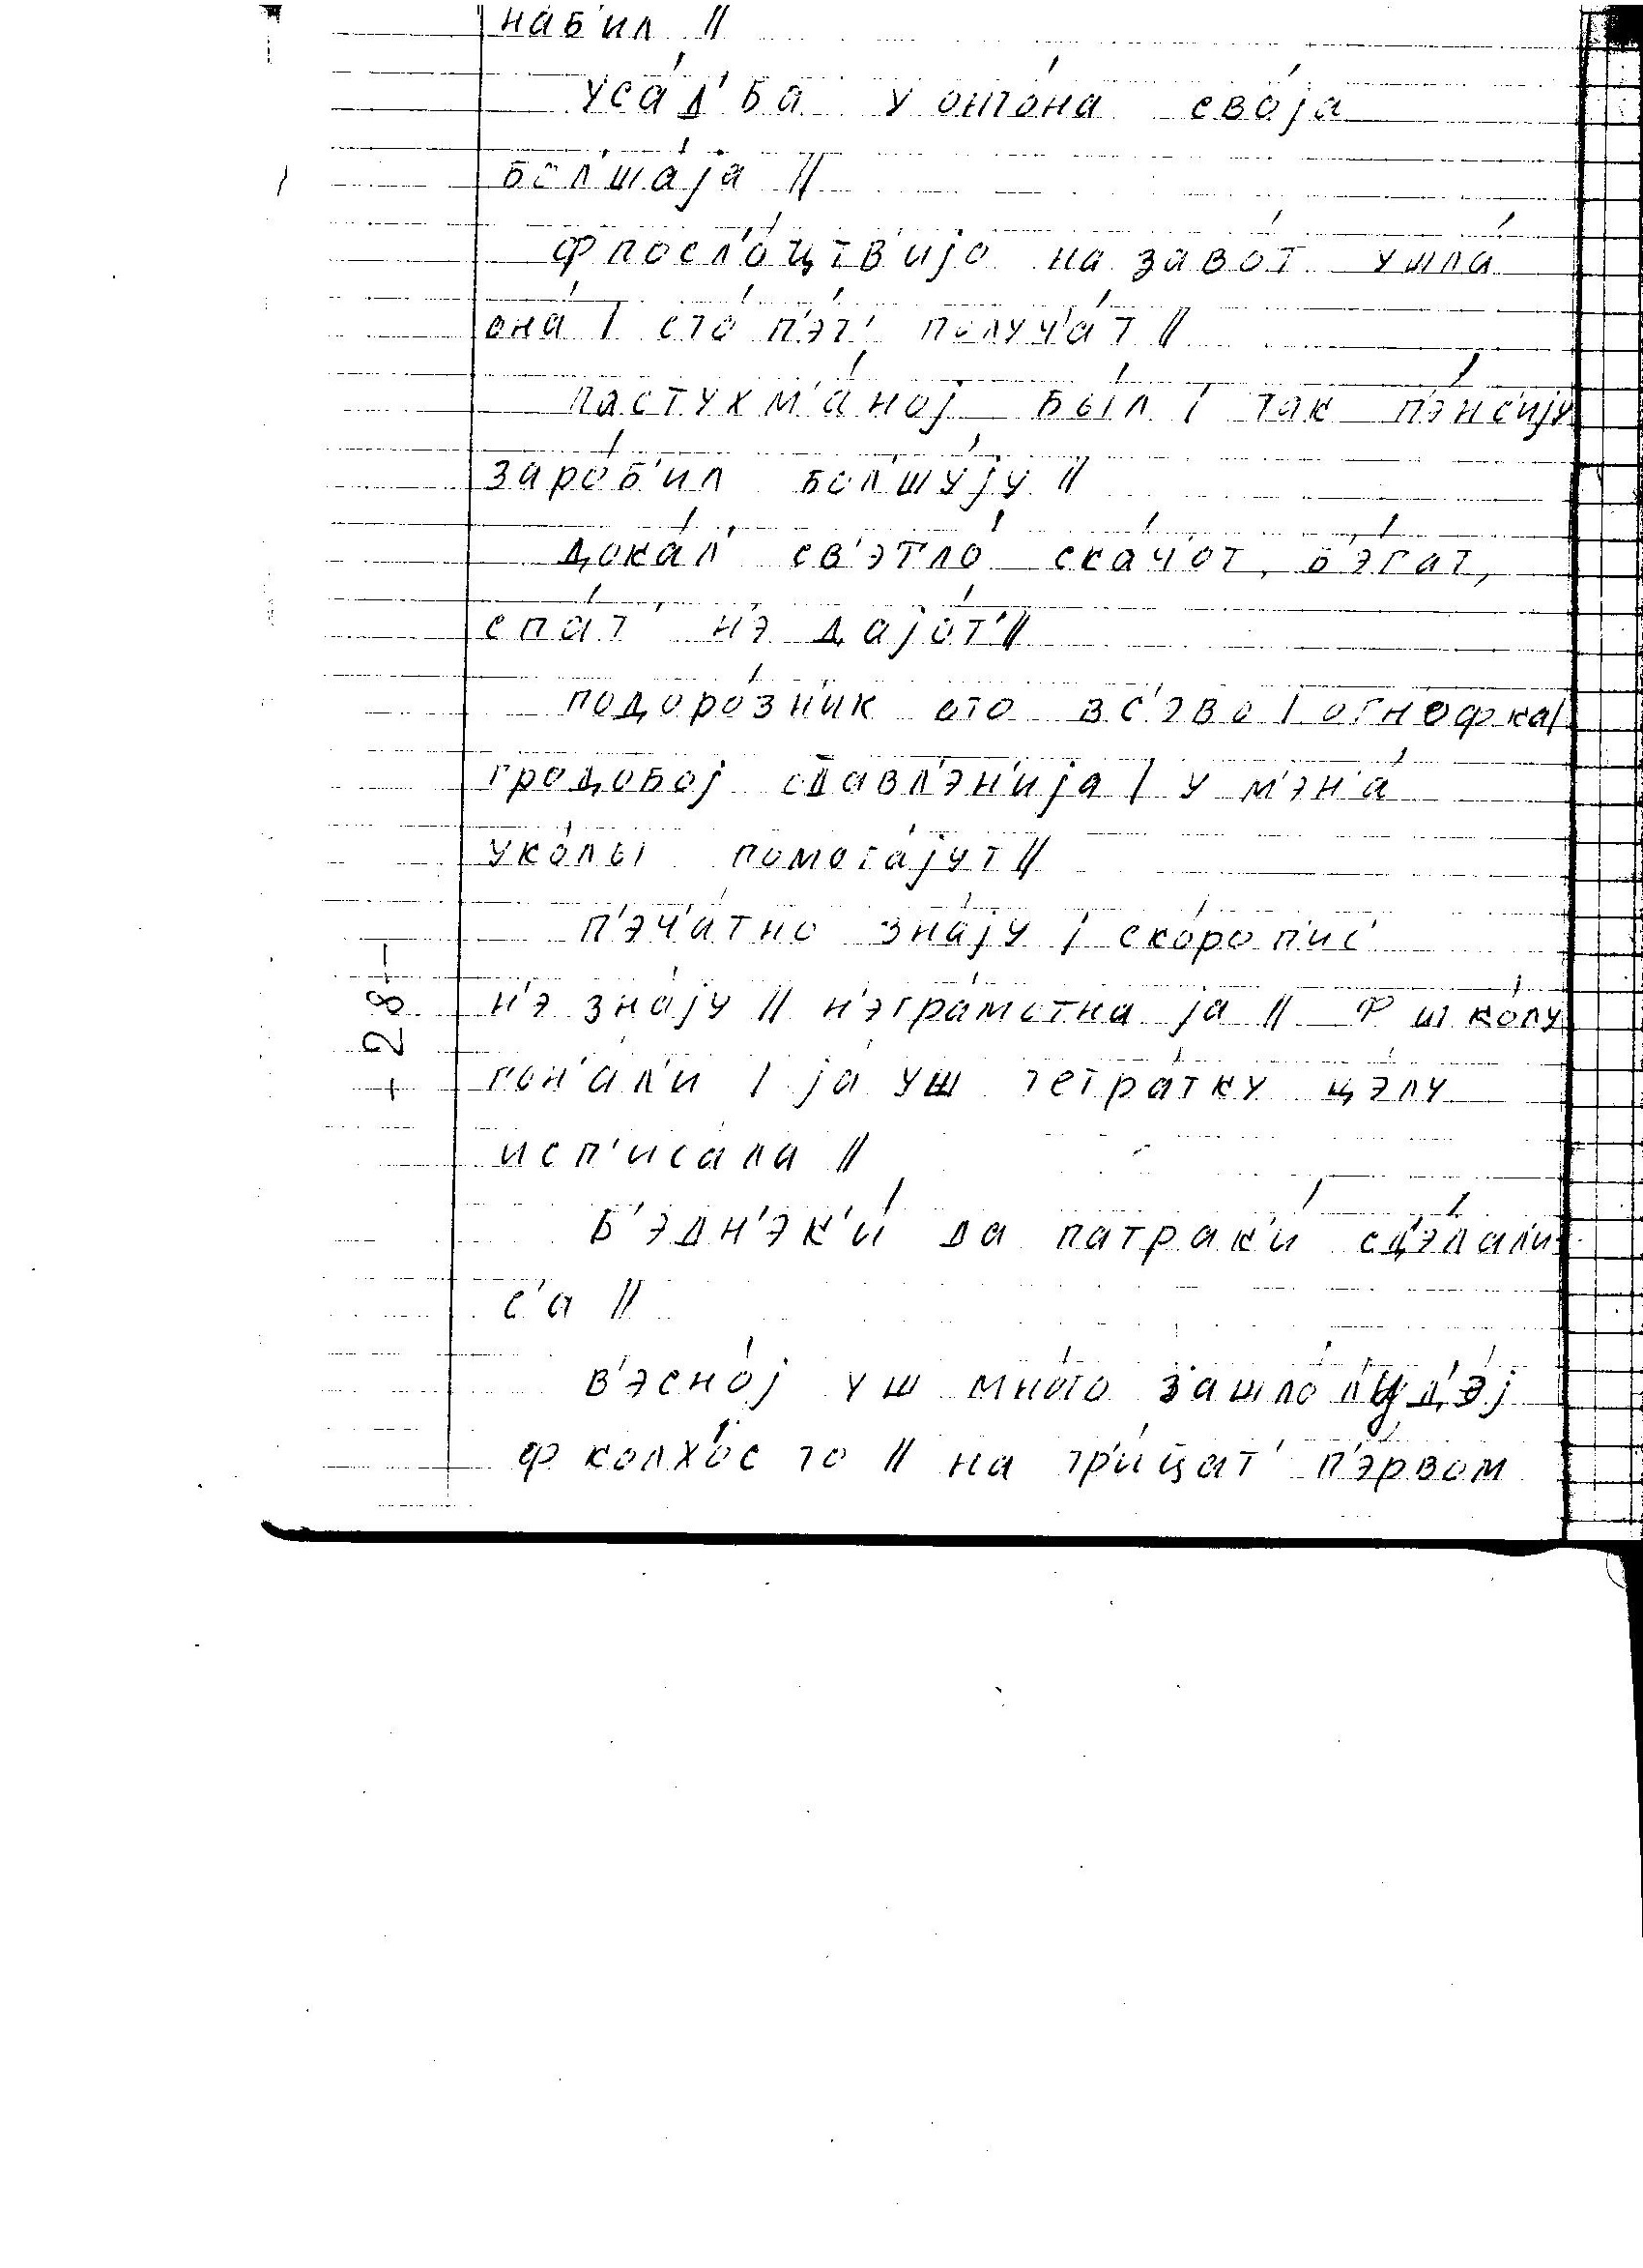 наб'ил ||
уса́д'ба у онто́на своjа́
бол'ша́jа ||
ф посл'о́цтв'иjо на заво́т ушла́
она́ | сто́ п'э́т' получ'а́т ||
пастух м'а́ноj бы́л | так п'э́нс'иjу
заро́б'ил бол'шу́jу ||
дока́л' св'этло́ ска́ч'от, б'э́гат,
спа́т' н'э даjо́т ||
подоро́зн'ик ото вс'эво | огн'офка |
гродобоj одавл'эн'иjа | у м'эн'а́
уко́лы помога́jут ||
п'эч'а́тно зна́jу | ско́роп'ис'
н'э зна́jу || н'эгра́мотна jа || ф шко́лу
гон'а́л'и | jа́ уш тетра́тку цэ́лу
исп'иса́ла ||
б'эдн'эк'и́ да патрак'и́ сд'э́лал'и
с'а ||
в'эсно́j уш мно́го зашло́ л'уд'э́j
ф колхо́с то || на тр'и́цат' п'э́рвом
- 28 -